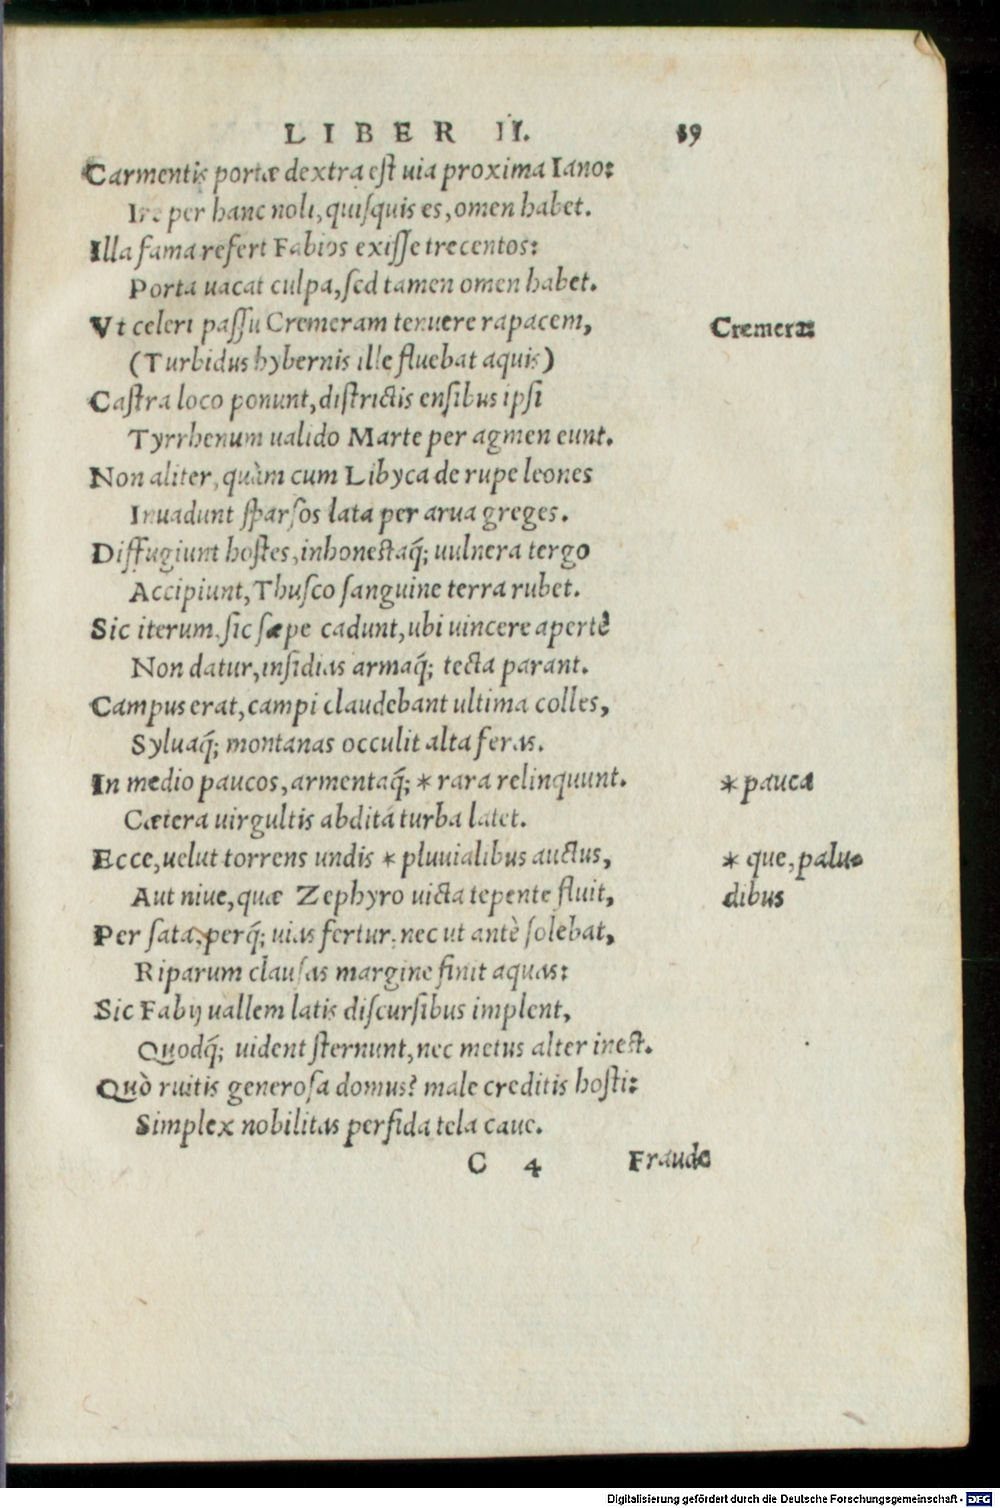 LIBER II. 39
Carmentis portæ dextra est uia proxima Iano:
Ire per hanc noli, quisquis es, omen habet.
Illa fama refert Fabios exisse trecentos:
Porta uacat culpa, sed tamen omen habet.
Vt celeri passu Cremeram tenuere rapacem, Cremera:
(Turbidus hybernis ille fluebat aquis)
Castra loco ponunt, districtis ensibus ipsi
Tyrrhenum ualido Marte per agmen eunt.
Non aliter, quàm cum Libyca de rupe leones
Inuadunt sparsos lata per arua greges.
Diffugiunt hostes, inhonestaq́; uulnera tergo
Accipiunt, Thusco sanguine terra rubet.
Sic iterum, sic sæpe cadunt, ubi uincere apertè
Non datur, insidias armaq́; tecta parant.
Campus erat, campi claudebant ultima colles,
Syluaq́; montanas occulit alta feras.
In medio paucos, armentaq́; * rara relinquunt. * pauca
Cætera uirgultis abdita turba latet.
Ecce, uelut torrens undis * pluuialibus auctus, * que, palu-
Aut niue, quæ Zephyro uicta tepente fluit, dibus
Per sata, perq́; uias fertur, nec ut antè solebat,
Riparum clausas margine finit aquas:
Sic Fabij uallem latis discursibus implent,
Quodq́; uident sternunt, nec metus alter inest.
Quò ruitis generosa domus? male creditis hosti:
Simplex nobilitas perfida tela caue.
C 4 Fraude
Digitalisierung gefördert durch die Deutsche Forschungsgemeinschaft - DFG